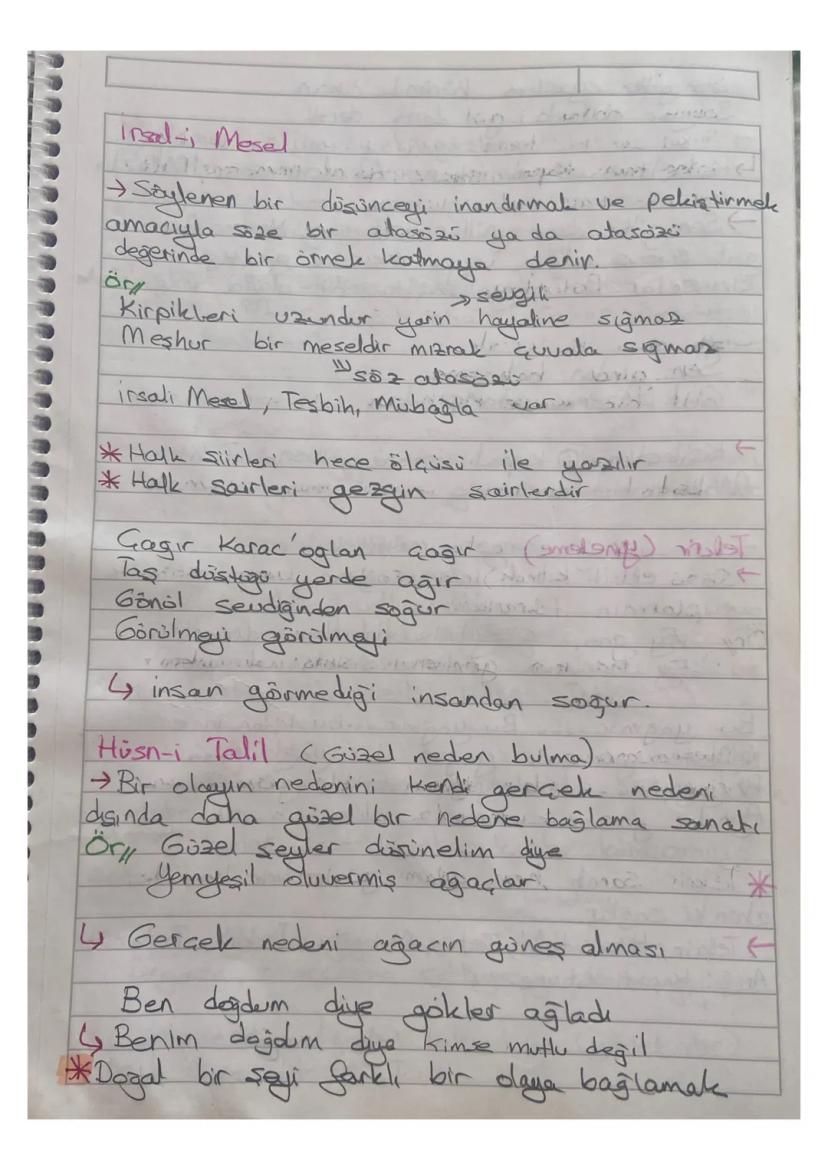 İrsal-i Mesel
→ Söylenen bir düşünceyi inandırmak ve pekiştirmek
amacıyla söze bir atasözü ya da atasözü
değerinde bir örnek katmaya denir.
Ör//
→ sevgili
Kirpikleri uzundur yarin hayaline sığmaz
Meşhur bir meseldir mızrak çuvala sığmaz
söz atasözü
irsali Mesel, Teşbih, Mübağla var
* Halk şiirleri hece ölçüsü ile yazılır
* Halk şairleri gezgin şairlerdir
Çağır Karac'oğlan çağır
Taş düştüğü yerde ağır
Gönül sevdiğinden soğur
Görülmeyi görülmeyi
↳ insan görmediği insandan soğur.
Hüsn-i Talil (Güzel neden bulma)
→ Bir olayın nedenini kendi gerçek nedeni
dışında daha güzel bir nedene bağlama sanatı
Ör// Güzel şeyler düşünelim diye
Yemyeşil oluvermiş ağaçlar.
↳ Gerçek nedeni ağacın güneş alması
Ben doğdum diye gökler ağladı
↳ Benim doğdum diye kimse mutlu değil
* Doğal bir şeyi farklı bir olaya bağlamak